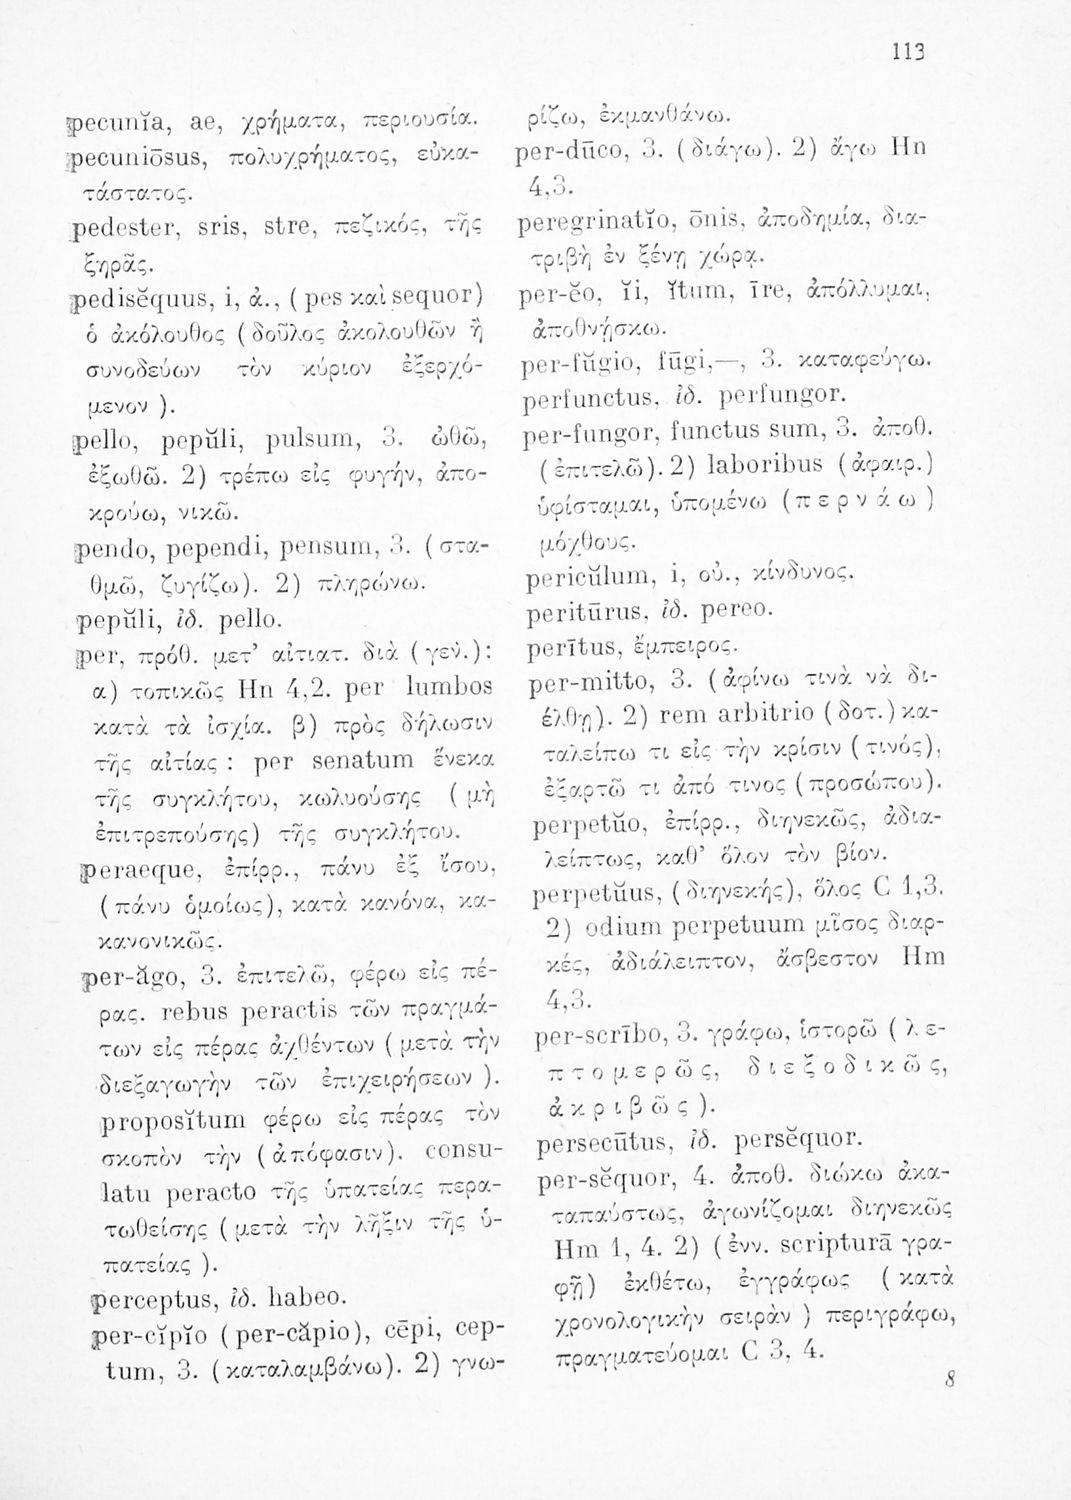 113
pecunĭa, ae, χρήματα, περιουσία.
pecuniōsus, πολυχρήματος, εὐκα-
τάστατος.
pedester, sris, stre, πεζικός, τῆς
ξηρᾶς.
pedisĕquus, i, ἀ., ( pes καὶ sequor)
ὁ ἀκόλουθος ( δοῦλος ἀκολουθῶν ἢ
συνοδεύων τὸν κύριον ἐξερχό-
μενον ).
pello, pepŭli, pulsum, 3. ὠθῶ,
ἐξωθῶ. 2) τρέπω εἰς φυγήν, ἀπο-
κρούω, νικῶ.
pendo, pependi, pensum, 3. ( στα-
θμῶ, ζυγίζω). 2) πληρώνω.
pepŭli, ἰδ. pello.
per, πρόθ. μετ’ αἰτιατ. διὰ ( γεν.):
α) τοπικῶς Hn 4,2. per lumbos
κατὰ τὰ ἰσχία. β) πρὸς δήλωσιν
τῆς αἰτίας : per senatum ἕνεκα
τῆς συγκλήτου, κωλυούσης ( μὴ
ἐπιτρεπούσης) τῆς συγκλήτου.
peraeque, ἐπίρρ., πάνυ ἐξ ἴσου,
( πάνυ ὁμοίως), κατὰ κανόνα, κα-
κανονικῶς.
per-ăgo, 3. ἐπιτελῶ, φέρω εἰς πέ-
ρας. rebus peractis τῶν πραγμά-
των εἰς πέρας ἀχθέντων ( μετὰ τὴν
διεξαγωγὴν τῶν ἐπιχειρήσεων ).
proposĭtum φέρω εἰς πέρας τὸν
σκοπὸν τὴν ( ἀπόφασιν). consu-
latu peracto τῆς ὑπατείας περα-
τωθείσης ( μετὰ τὴν λῆξιν τῆς ὑ-
πατείας ).
perceptus, ἰδ. habeo.
per-cĭpĭo ( per-căpio), cēpi, cep-
tum, 3. ( καταλαμβάνω). 2) γνω-
ρίζω, ἐκμανθάνω.
per-dūco, 3. ( διάγω). 2) ἄγω Hn
4,3.
peregrinatĭo, ōnis, ἀποδημία, δια-
τριβὴ ἐν ξένῃ χώρᾳ.
per-ĕo, ĭi, ĭtum, īre, ἀπόλλυμαι,
ἀποθνήσκω.
per-fŭgio, fūgi,—, 3. καταφεύγω.
perfunctus, ἰδ. perfungor.
per-fungor, functus sum, 3. ἀποθ.
( ἐπιτελῶ). 2) laboribus ( ἀφαιρ.)
ὑφίσταμαι, ὑπομένω ( π ε ρ ν ά ω )
μόχθους.
pericŭlum, i, οὐ., κίνδυνος.
peritūrus, ἰδ. pereo.
perītus, ἔμπειρος.
per-mitto, 3. ( ἀφίνω τινὰ νὰ δι-
έλθῃ). 2) rem arbitrio ( δοτ.) κα-
ταλείπω τι εἰς τὴν κρίσιν ( τινός),
ἐξαρτῶ τι ἀπό τινος ( προσώπου).
perpetŭo, ἐπίρρ., διηνεκῶς, ἀδια-
λείπτως, καθ’ ὅλον τὸν βίον.
perpetŭus, ( διηνεκής), ὅλος C 1,3.
2) odium perpetuum μῖσος διαρ-
κές, ἀδιάλειπτον, ἄσβεστον Hm
4,3.
per-scrībo, 3. γράφω, ἱστορῶ ( λ ε-
π τ ο μ ε ρ ῶ ς, δ ι ε ξ ο δ ι κ ῶ ς,
ἀ κ ρ ι β ῶ ς ).
persecūtus, ἰδ. persĕquor.
per-sĕquor, 4. ἀποθ. διώκω ἀκα-
ταπαύστως, ἀγωνίζομαι διηνεκῶς
Hm 1, 4. 2) ( ἐνν. scripturā γρα-
φῇ) ἐκθέτω, ἐγγράφως ( κατὰ
χρονολογικὴν σειρὰν ) περιγράφω,
πραγματεύομαι C 3, 4.
8